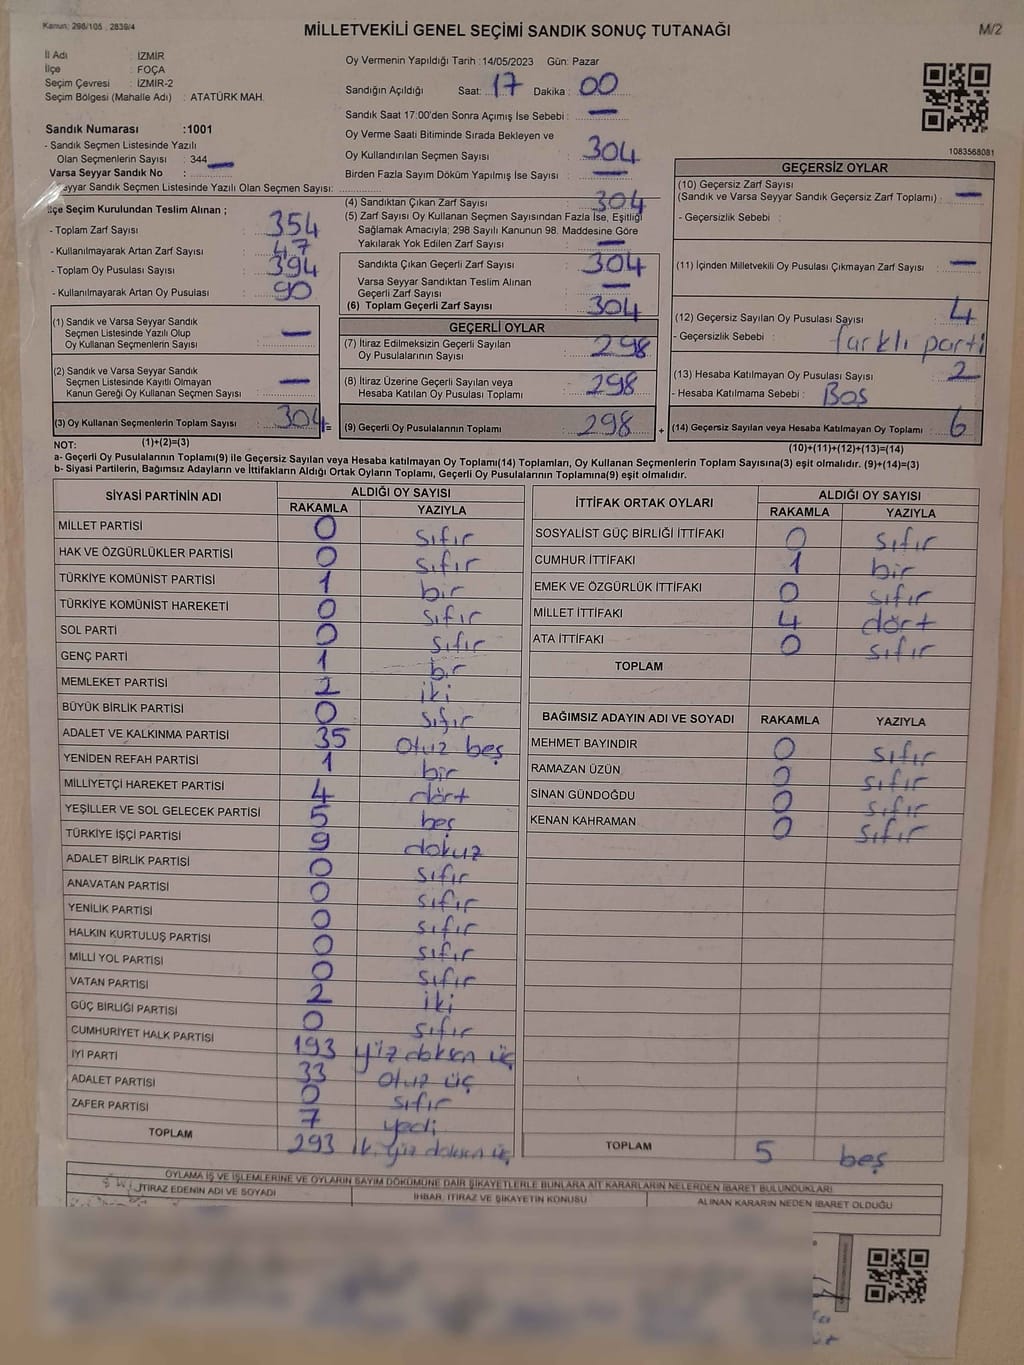 Kanun: 298/105 . 2839/4
MİLLETVEKİLİ GENEL SEÇİMİ SANDIK SONUÇ TUTANAĞI
M/2
İl Adı : İZMİR
İlçe : FOÇA
Seçim Çevresi : İZMİR-2
Seçim Bölgesi (Mahalle Adı) : ATATÜRK MAH.
Sandık Numarası :1001
- Sandık Seçmen Listesinde Yazılı
Olan Seçmenlerin Sayısı : 344
Varsa Seyyar Sandık No : —
Seyyar Sandık Seçmen Listesinde Yazılı Olan Seçmen Sayısı:
Oy Vermenin Yapıldığı Tarih :14/05/2023 Gün: Pazar
Sandığın Açıldığı Saat: 17 Dakika : 00
Sandık Saat 17:00'den Sonra Açımış İse Sebebi : —
Oy Verme Saati Bitiminde Sırada Bekleyen ve
Oy Kullandırılan Seçmen Sayısı : 304
Birden Fazla Sayım Döküm Yapılmış İse Sayısı : —
1083568081
İlçe Seçim Kurulundan Teslim Alınan ;
- Toplam Zarf Sayısı : 354
- Kullanılmayarak Artan Zarf Sayısı : 47
- Toplam Oy Pusulası Sayısı : 394
- Kullanılmayarak Artan Oy Pusulası : 90
(1) Sandık ve Varsa Seyyar Sandık
Seçmen Listesinde Yazılı Olup
Oy Kullanan Seçmenlerin Sayısı : —
(2) Sandık ve Varsa Seyyar Sandık
Seçmen Listesinde Kayıtlı Olmayan
Kanun Gereği Oy Kullanan Seçmen Sayısı : —
(3) Oy Kullanan Seçmenlerin Toplam Sayısı : 304 =
(1)+(2)=(3)
(4) Sandıktan Çıkan Zarf Sayısı : 304
(5) Zarf Sayısı Oy Kullanan Seçmen Sayısından Fazla İse, Eşitliği
Sağlamak Amacıyla; 298 Sayılı Kanunun 98. Maddesine Göre
Yakılarak Yok Edilen Zarf Sayısı : —
Sandıkta Çıkan Geçerli Zarf Sayısı : 304
Varsa Seyyar Sandıktan Teslim Alınan
Geçerli Zarf Sayısı : —
(6) Toplam Geçerli Zarf Sayısı : 304
GEÇERLİ OYLAR
(7) İtiraz Edilmeksizin Geçerli Sayılan
Oy Pusulalarının Sayısı : 298
(8) İtiraz Üzerine Geçerli Sayılan veya
Hesaba Katılan Oy Pusulası Toplamı : 298
(9) Geçerli Oy Pusulalarının Toplamı : 298 +
GEÇERSİZ OYLAR
(10) Geçersiz Zarf Sayısı
(Sandık ve Varsa Seyyar Sandık Geçersiz Zarf Toplamı) : —
- Geçersizlik Sebebi :
(11) İçinden Milletvekili Oy Pusulası Çıkmayan Zarf Sayısı : —
(12) Geçersiz Sayılan Oy Pusulası Sayısı : 4
- Geçersizlik Sebebi : farklı parti
(13) Hesaba Katılmayan Oy Pusulası Sayısı : 2
- Hesaba Katılmama Sebebi : Boş
(14) Geçersiz Sayılan veya Hesaba Katılmayan Oy Toplamı : 6
(10)+(11)+(12)+(13)=(14)
NOT:
a- Geçerli Oy Pusulasının Toplamı(9) ile Geçersiz Sayılan veya Hesaba katılmayan Oy Toplamı(14) Toplamları, Oy Kullanan Seçmenlerin Toplam Sayısına(3) eşit olmalıdır. (9)+(14)=(3)
b- Siyasi Partilerin, Bağımsız Adayların ve İttifakların Aldığı Ortak Oyların Toplamı, Geçerli Oy Pusulalarının Toplamına(9) eşit olmalıdır.
SİYASİ PARTİNİN ADI ALDIĞI OY SAYISI
RAKAMLA YAZIYLA
MİLLET PARTİSİ 0 sıfır
HAK VE ÖZGÜRLÜKLER PARTİSİ 0 sıfır
TÜRKİYE KOMÜNİST PARTİSİ 1 bir
TÜRKİYE KOMÜNİST HAREKETİ 0 sıfır
SOL PARTİ 0 sıfır
GENÇ PARTİ 1 bir
MEMLEKET PARTİSİ 2 iki
BÜYÜK BİRLİK PARTİSİ 0 sıfır
ADALET VE KALKINMA PARTİSİ 35 otuz beş
YENİDEN REFAH PARTİSİ 1 bir
MİLLİYETÇİ HAREKET PARTİSİ 4 dört
YEŞİLLER VE SOL GELECEK PARTİSİ 5 beş
TÜRKİYE İŞÇİ PARTİSİ 9 dokuz
ADALET BİRLİK PARTİSİ 0 sıfır
ANAVATAN PARTİSİ 0 sıfır
YENİLİK PARTİSİ 0 sıfır
HALKIN KURTULUŞ PARTİSİ 0 sıfır
MİLLİ YOL PARTİSİ 0 sıfır
VATAN PARTİSİ 2 iki
GÜÇ BİRLİĞİ PARTİSİ 0 sıfır
CUMHURİYET HALK PARTİSİ 193 yüz doksan üç
İYİ PARTİ 33 otuz üç
ADALET PARTİSİ 0 sıfır
ZAFER PARTİSİ 7 yedi
TOPLAM 293 iki yüz doksan üç
İTTİFAK ORTAK OYLARI ALDIĞI OY SAYISI
RAKAMLA YAZIYLA
SOSYALİST GÜÇ BİRLİĞİ İTTİFAKI 0 sıfır
CUMHUR İTTİFAKI 1 bir
EMEK VE ÖZGÜRLÜK İTTİFAKI 0 sıfır
MİLLET İTTİFAKI 4 dört
ATA İTTİFAKI 0 sıfır
TOPLAM
BAĞIMSIZ ADAYIN ADI VE SOYADI RAKAMLA YAZIYLA
MEHMET BAYINDIR 0 sıfır
RAMAZAN ÜZÜN 0 sıfır
SİNAN GÜNDOĞDU 0 sıfır
KENAN KAHRAMAN 0 sıfır
TOPLAM 5 beş
OYLAMA İŞ VE İŞLEMLERİNE VE OYLARIN SAYIM DÖKÜMÜNE DAİR ŞİKAYETLERLE BUNLARA AİT KARARLARIN NELERDEN İBARET BULUNDUKLARI
İTİRAZ EDENİN ADI VE SOYADI İHBAR, İTİRAZ VE ŞİKAYETİN KONUSU ALINAN KARARIN NEDEN İBARET OLDUĞU